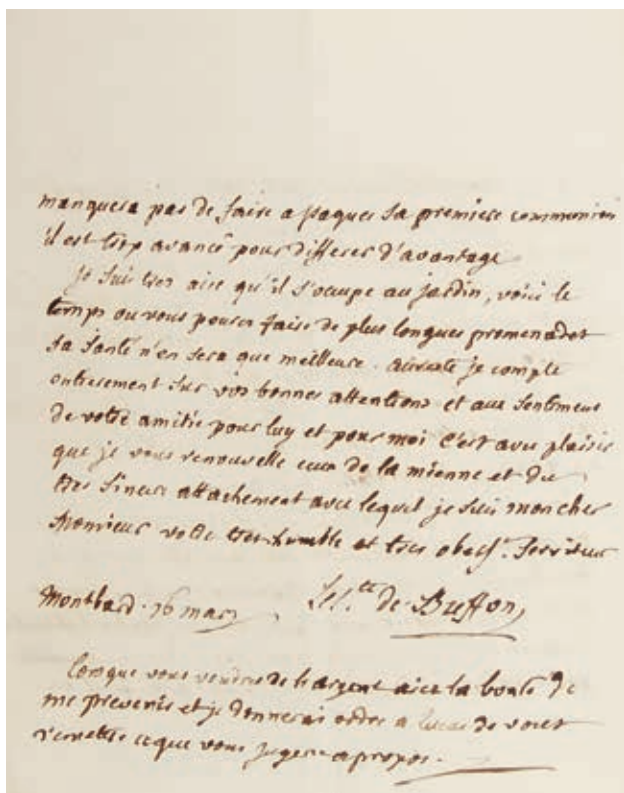 manquera pas de faire a paques sa premiere communion
il est trop avancé pour differer d'avantage
je suis tres aise qu'il s'occupe au jardin, voici le
temps ou vous pourez faire de plus longues promenades
sa santé n'en sera que meilleure. aureste je compte
entierement sur vos bonnes attentions et aux sentimens
de votre amitié pour luy et pour moi c'est avec plaisir
que je vous renouvelle ceux de la mienne et du
tres sincere attachement avec lequel je suis mon cher
Monsieur votre tres humble et tres obeisst. Serviteur
Montbard. 16 mars
Le Cte de Buffon
lorsque vous de l'argent aiez la bonté de
me prevenir et je donnerai ordre a lucas de vous
remettre ce que vous jugerez apropos.